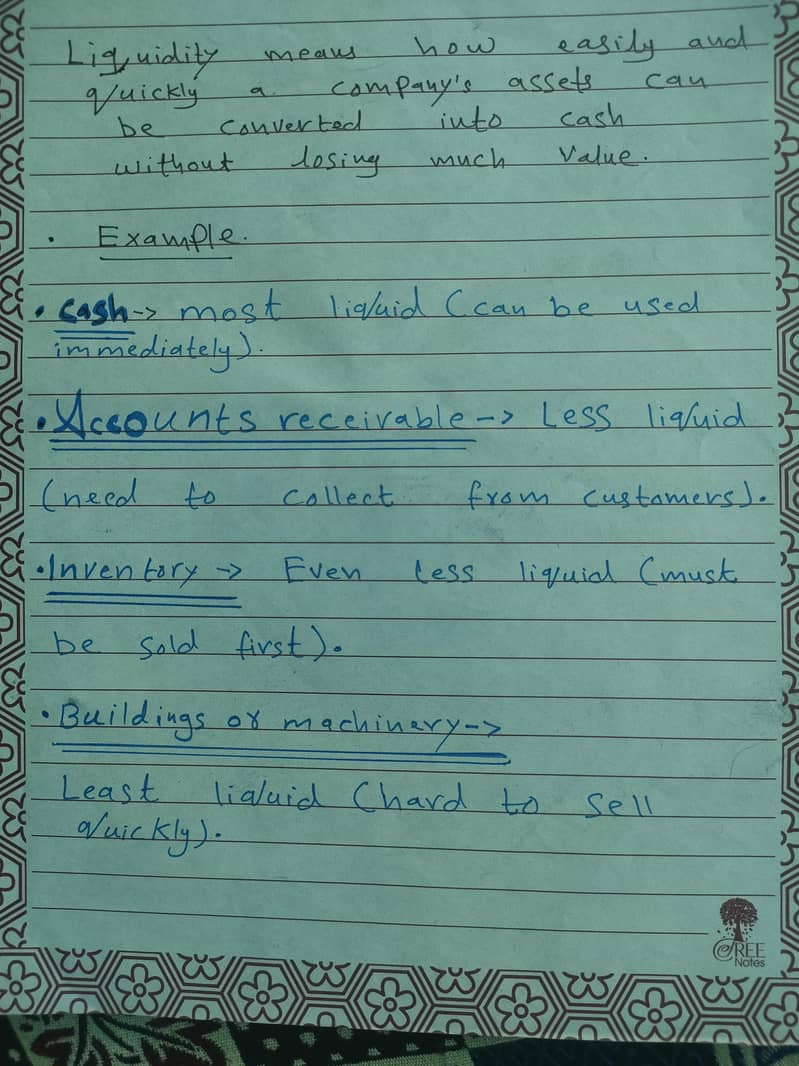 Liquidity means how easily and
quickly a company's assets can
be converted into cash
without losing much value.
. Example.
• Cash-> most liquid (can be used
immediately).
• Accounts receivable -> Less liquid
(need to collect from customers).
• Inventory -> Even less liquid (must
be sold first).
• Buildings or machinery->
Least liquid (hard to sell
quickly).
TREE
Notes